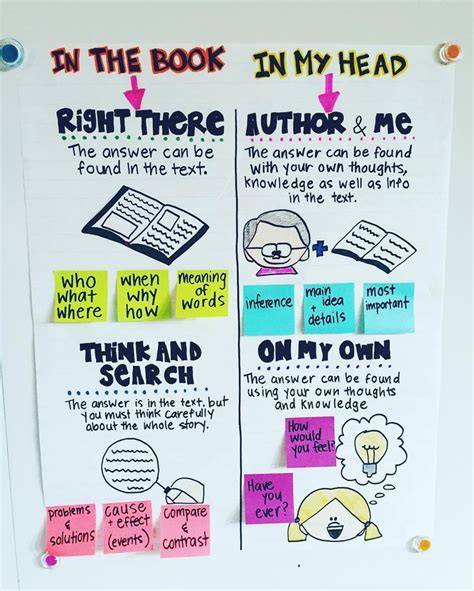 IN THE BOOK
IN MY HEAD
RIGHT THERE
The answer can be
found in the text.
who
what
where
when
why
how
meaning
of
words
AUTHOR & ME
The answer can be found
with your own thoughts,
knowledge as well as info
in the text.
+
inference
main
idea
+
details
most
important
THINK AND
SEARCH
The answer is in the text, but
you must think carefully
about the whole story.
problems
&
solutions
cause
+ effect
(events)
compare
&
contrast
ON MY OWN
The answer can be found
using your own thoughts
and knowledge
How
would
you feel?
Have
you
ever?